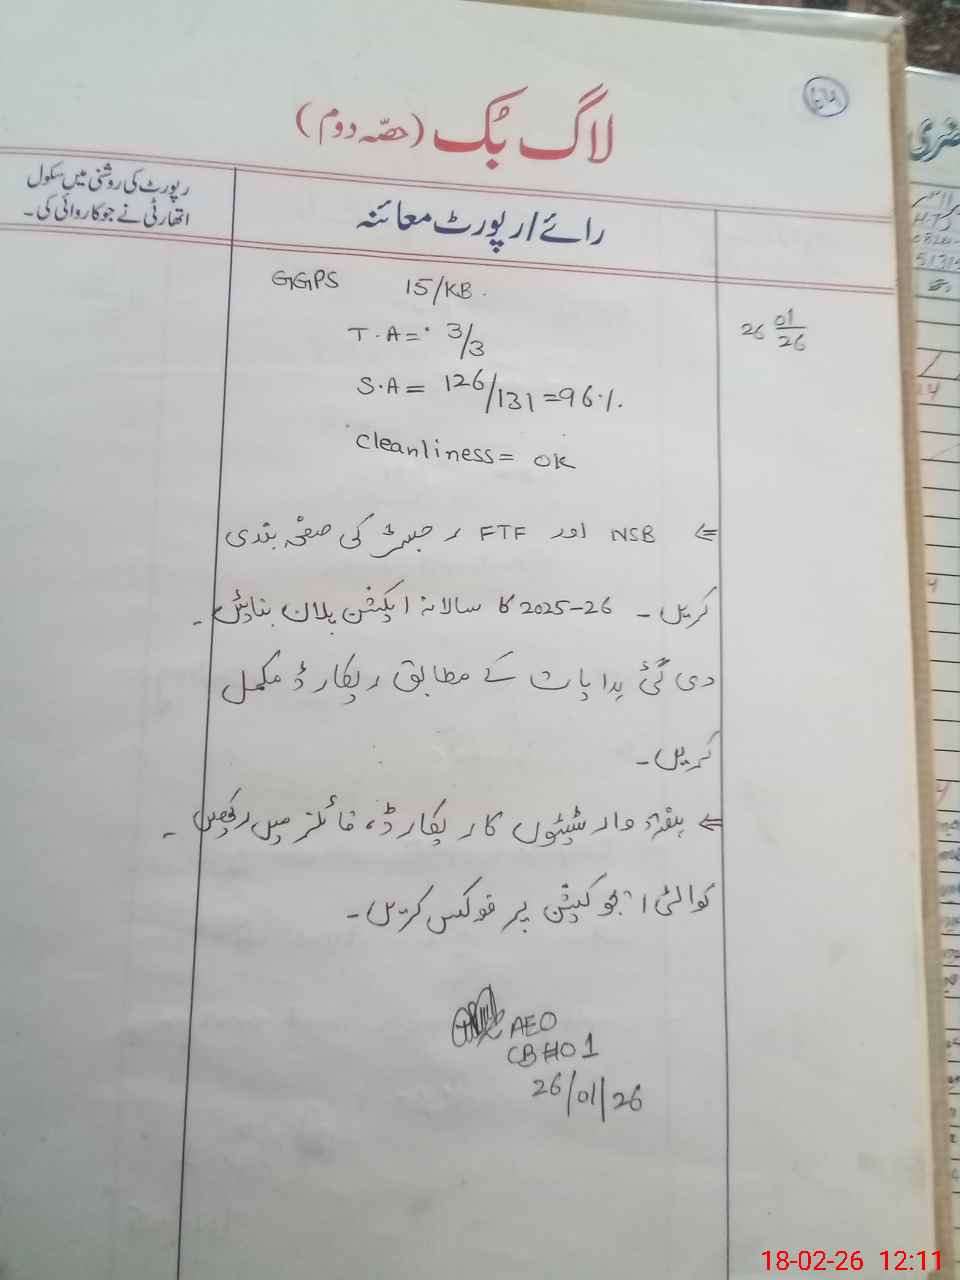 لاگ بُک (حصّہ دوم)
رائے/رپورٹ معائنہ
رپورٹ کی روشنی میں سکول
اتھارٹی نے جو کاروائی کی۔
26 01/26
GGPS 15/KB.
T.A = 3/3
S.A = 126/131 = 96%.
cleanliness = OK
⇐ NSB اور FTF رجسٹر کی صفحہ بندی
کریں۔ 2025-26 کا سالانہ ایکشن پلان بنائیں۔
دی گئی ہدایات کے مطابق ریکارڈ مکمل
کریں۔
⇐ ہفتہ وار ٹیسٹوں کا ریکارڈ، فائلز میں رکھیں۔
کوالٹی ایجوکیشن پر فوکس کریں۔
AEO
CB#01
26/01/26
18-02-26 12:11